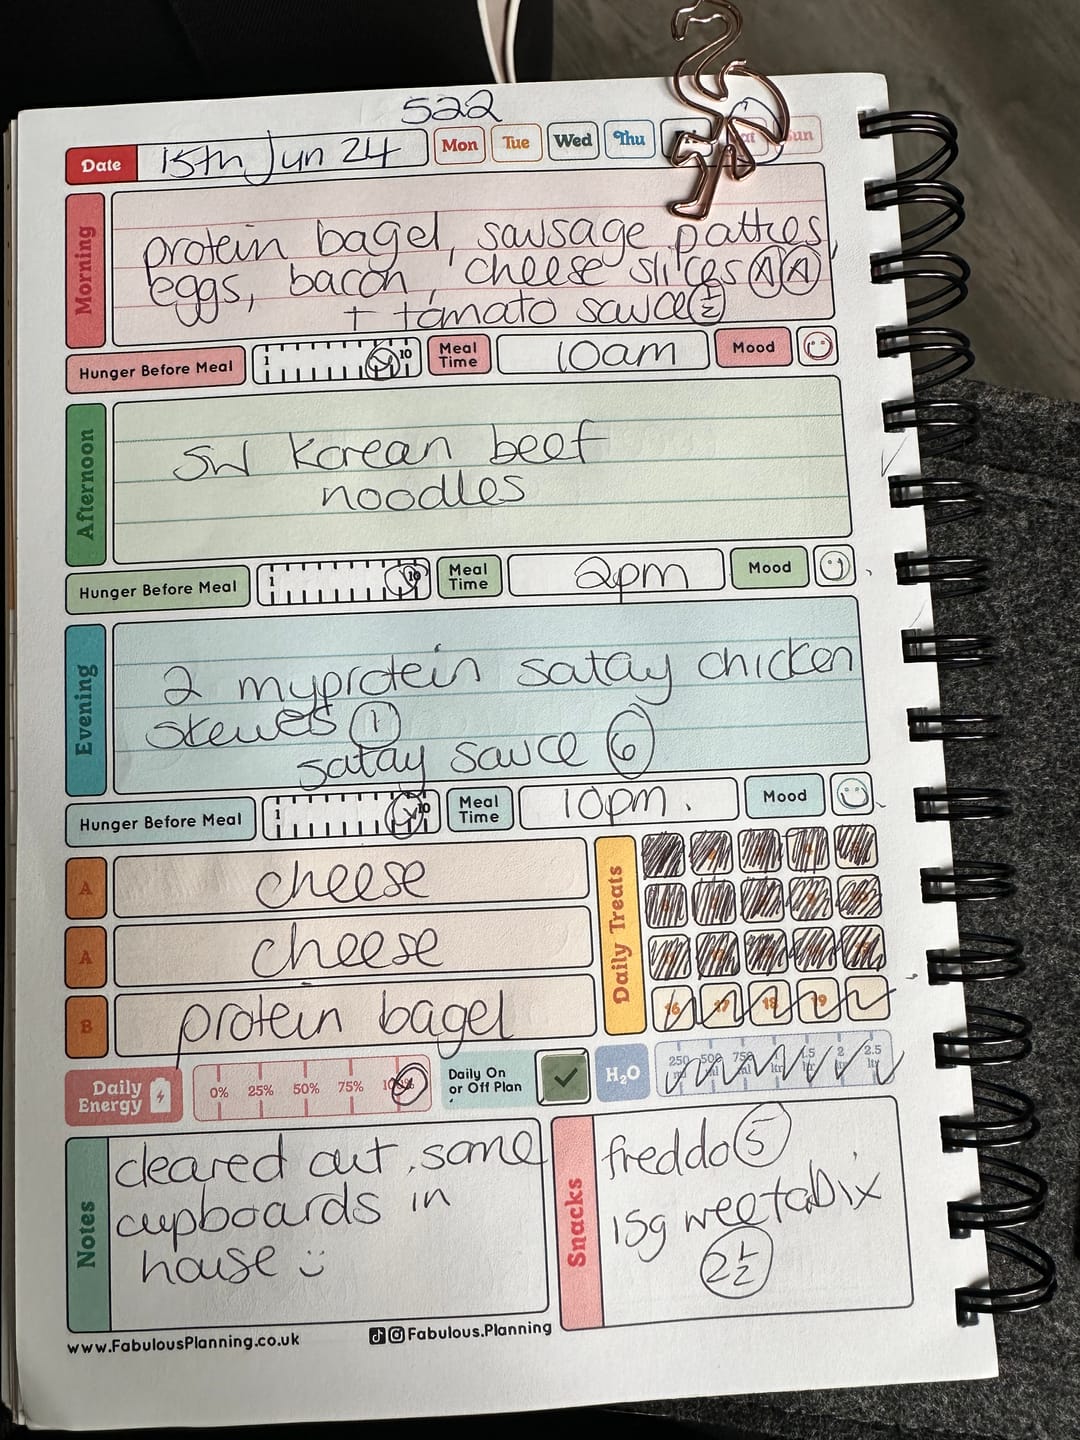 522
Date 15th Jun 24 Mon Tue Wed Thu Fri Sat Sun
Morning
protein bagel, sausage patties,
eggs, bacon, cheese slices A A
+ tomato sauce ½
Hunger Before Meal 1 10 Meal Time 10am Mood
Afternoon
SW Korean beef
noodles
Hunger Before Meal 1 10 Meal Time 2pm Mood
Evening
2 myprotein satay chicken
skewes 1
satay sauce 6
Hunger Before Meal 1 10 Meal Time 10pm. Mood
A cheese
A cheese
B protein bagel
Daily Treats
16 17 18 19
Daily Energy 0% 25% 50% 75% 100%
Daily On or Off Plan
H₂O 250 ml 500 ml 750 ml 1 ltr 1.5 ltr 2 ltr 2.5 ltr
Notes
cleared out some
cupboards in
house
Snacks
freddo 5
15g weetabix
2½
www.FabulousPlanning.co.uk
Fabulous.Planning